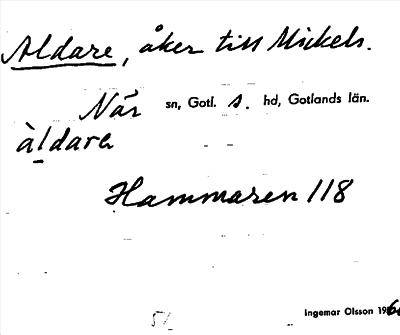 Aldare, åker till Mickels.
När sn, Gotl. s. hd, Gotlands län.
àl̠dara
Hammaren 118
Ingemar Olsson 196
5/